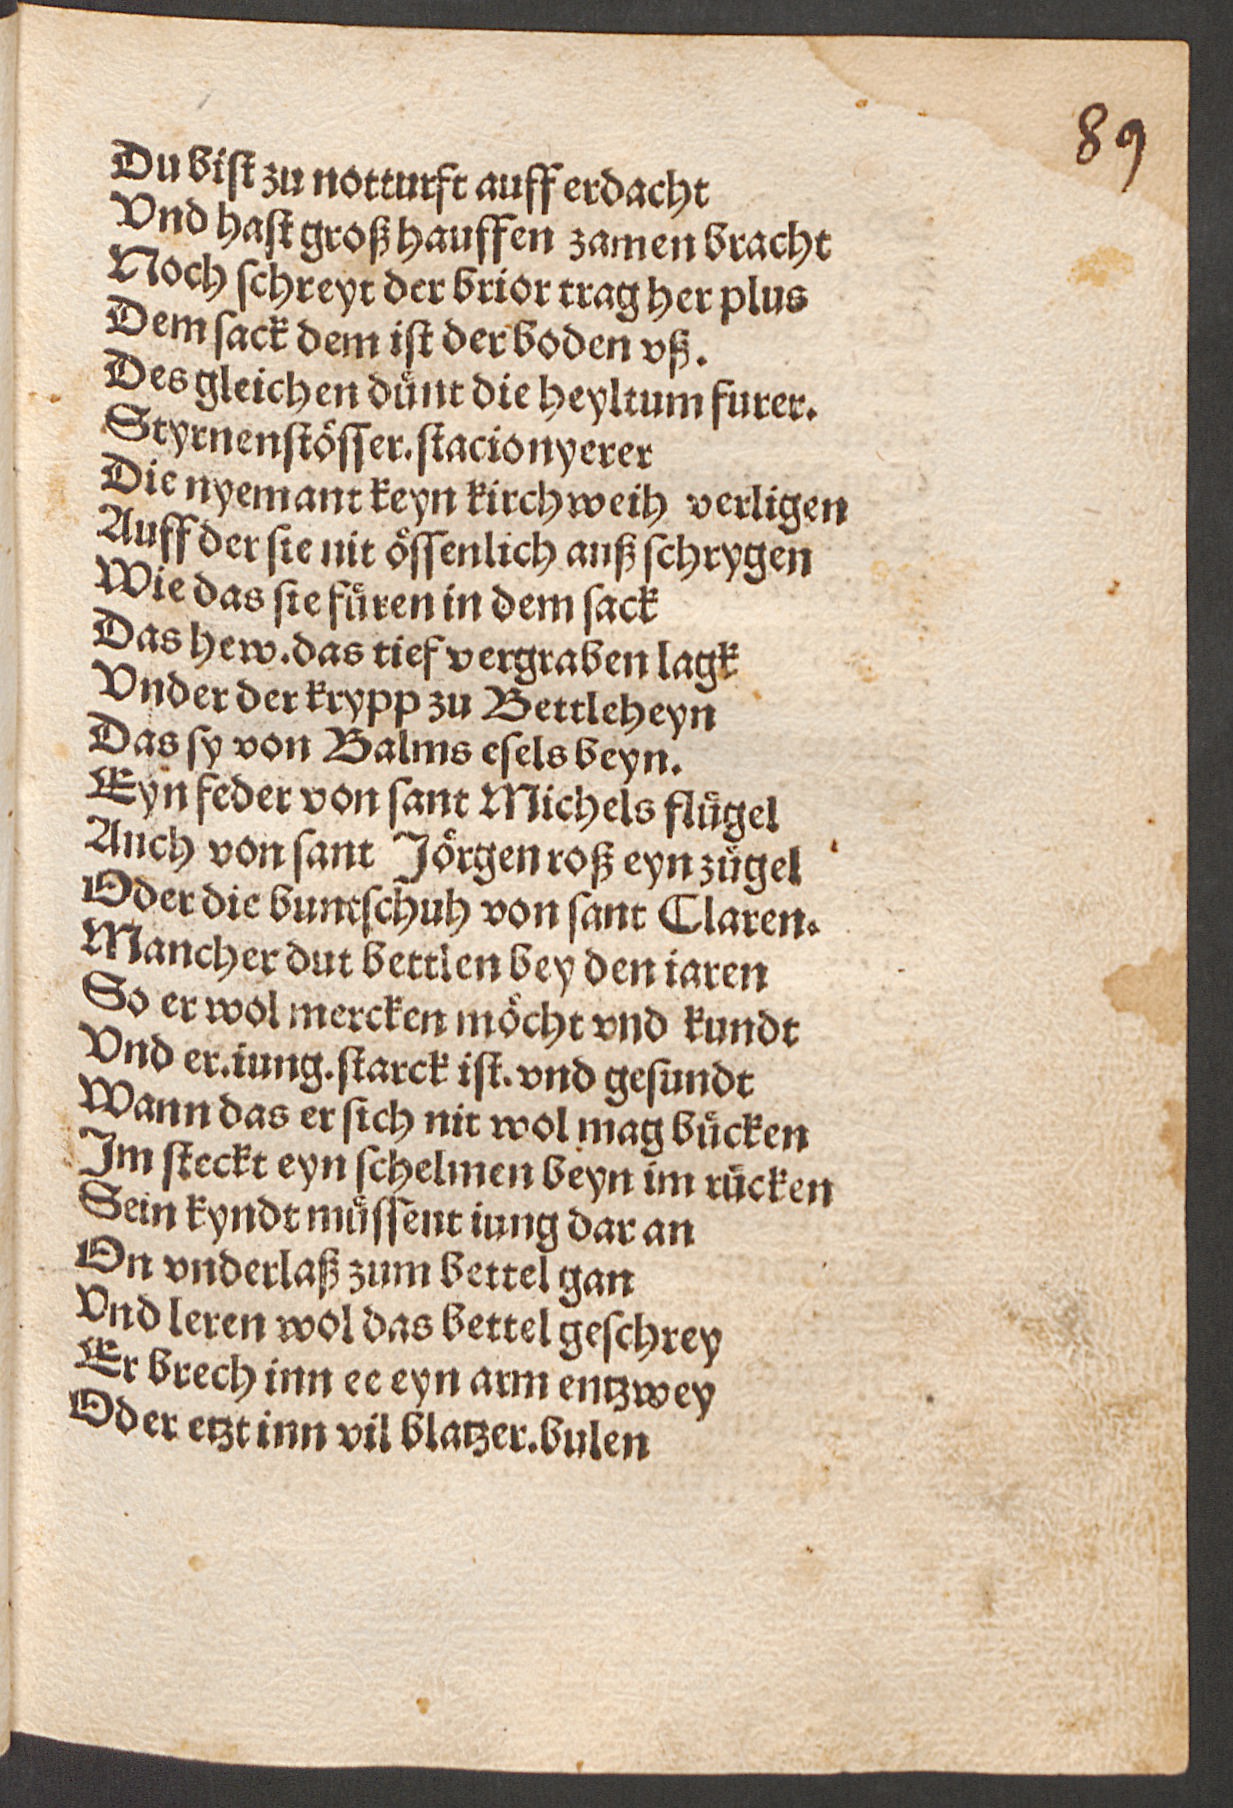 89
Du bist zu notturft auff erdacht
Vnd hast groß hauffen zamen bracht
Noch schreyt der brior trag her plus
Dem sack dem ist der boden vß.
Des gleichen důnt die heyltum furer.
Styrnenstösser. stacionyerer
Die nyemant keyn kirchweih verligen
Auff der sie nit össenlich auß schrygen
Wie das sie fůren in dem sack
Das hew. das tief vergraben lagk
Vnder der krypp zu Bettleheyn
Das sy von Balms esels beyn.
Eyn feder von sant Michels flůgel
Auch von sant Jörgen roß eyn zůgel
Oder die buntschuh von sant Claren.
Mancher dut bettlen bey den iaren
So er wol mercken möcht vnd kundt
Vnd er. iung. starck ist. vnd gesundt
Wann das er sich nit wol mag bůcken
Im steckt eyn schelmen beyn im růcken
Sein kyndt můssent iung dar an
On vnderlaß zum bettel gan
Vnd leren wol das bettel geschrey
Er brech inn ee eyn arm entzwey
Oder etzt inn vil blatzer. bulen